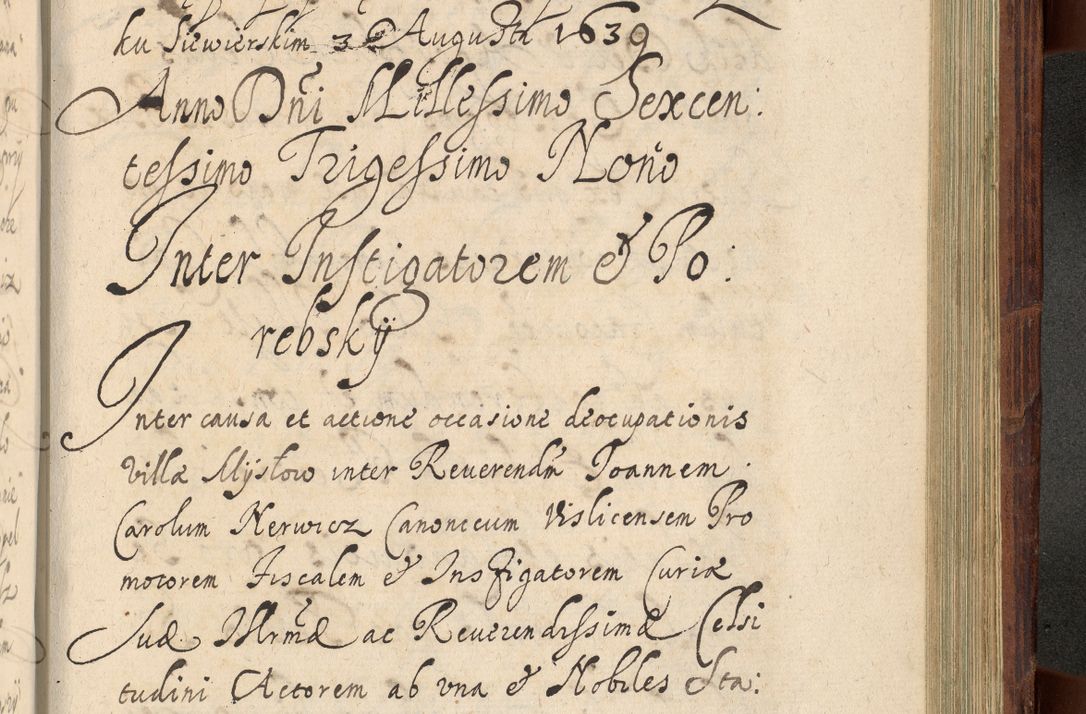 ku Siewierskim 30 Augusta 1639
Anno Dñi Millessimo Sexcen:
tessimo Trigessimo Nono
Inter Instigatorem & Po:
rebskÿ
Inter causa et actione occasione deocupationis
villæ Mÿslow inter Reuerendm̃ Joannem
Carolum Nerwicz Canonicum Vislicensem Pro
motorem Fiscalem & Instigatorem Curiæ
Suæ Illrmæ ac Reuerendissimæ Celsi
tudini Actorem ab vna & Nobiles Sta: